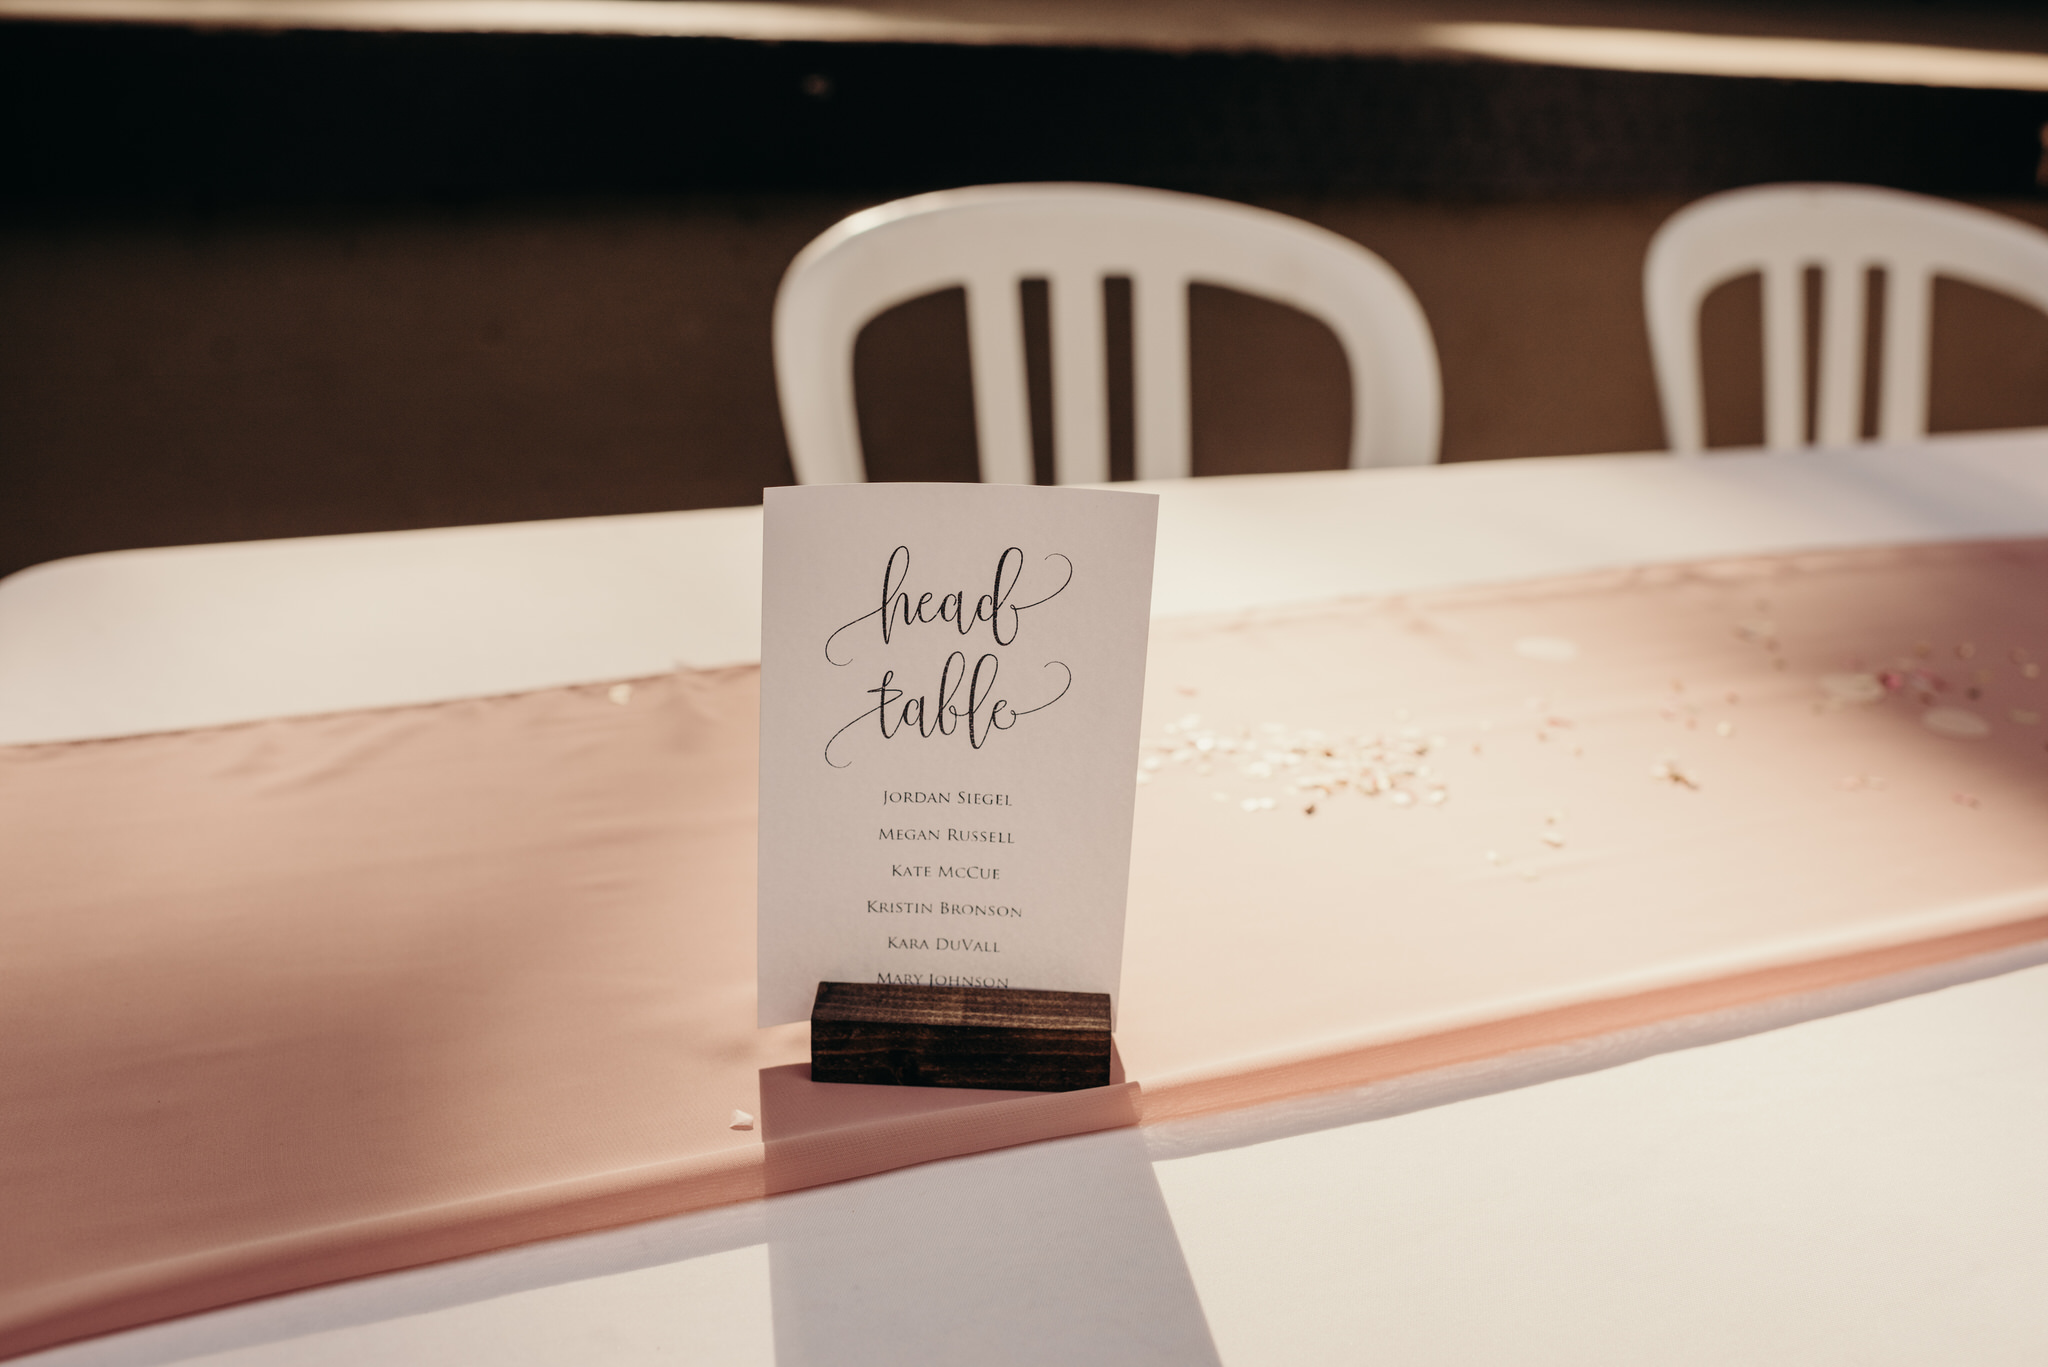 head
table
Jordan Siegel
Megan Russell
Kate McCue
Kristin Bronson
Kara DuVall
Mary Johnson